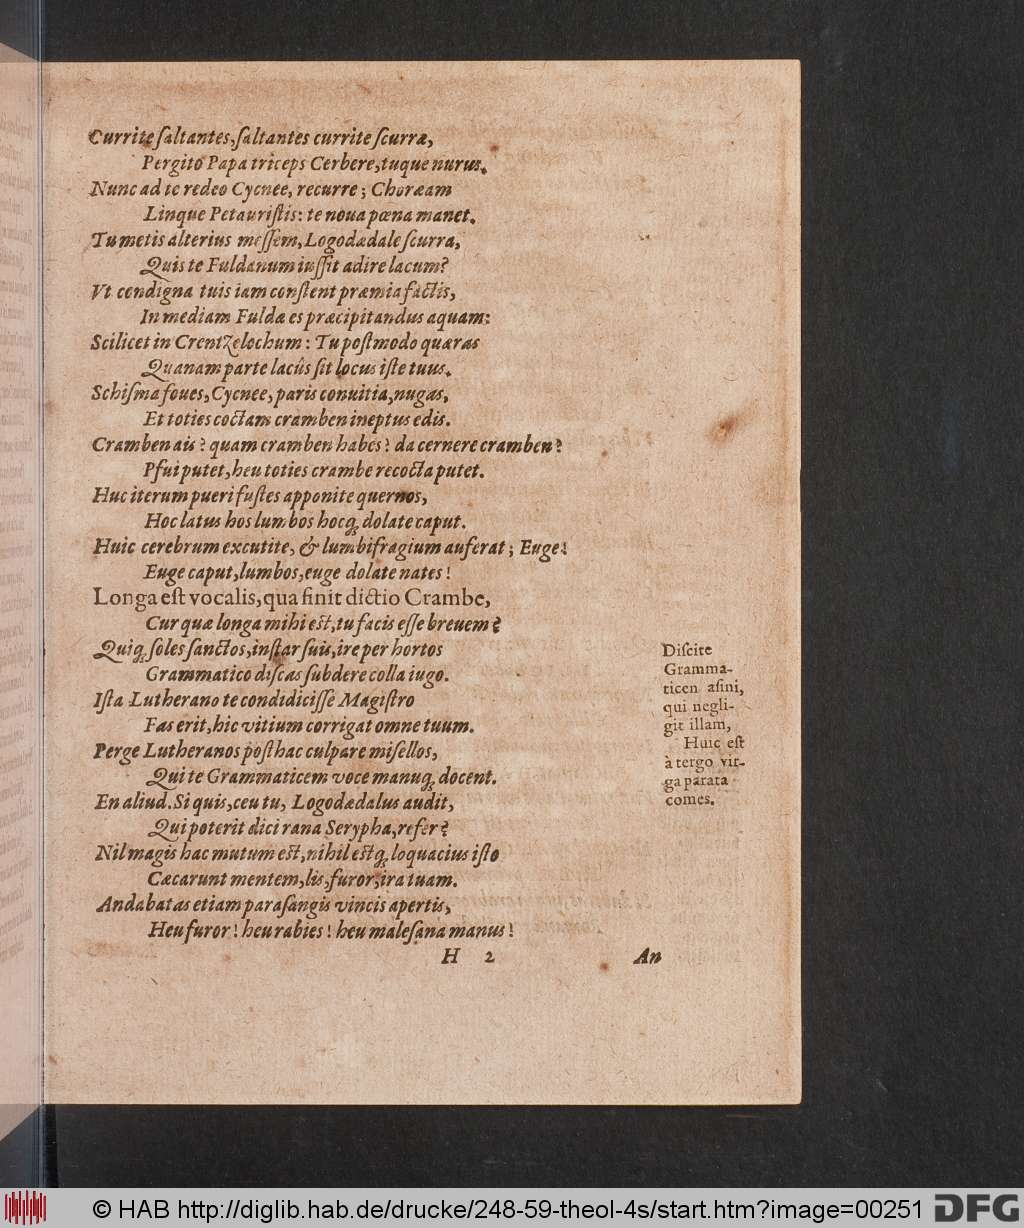 Currite ſaltantes, ſaltantes currite ſcurræ,
Pergito Papa triceps Cerbere, tuque nurus.
Nunc ad te redeo Cycnee, recurre; Choræam
Linque Petauriſtis: te noua pœna manet.
Tu metis alterius meſſem, Logodædale ſcurra,
Quis te Fuldanum iuſſit adire lacum?
Vt cendigna tuis iam conſtent præmia factis,
In mediam Fuldæ es præcipitandus aquam:
Scilicet in Crentzelochum: Tu poſtmodo quæras
Quanam parte lacûs ſit locus iſte tuus.
Schiſma foues, Cycnee, paris conuitia, nugas,
Et toties coctam cramben ineptus edis.
Cramben ais? quam cramben habes? da cernere cramben?
Pfui putet, heu toties crambe recocta putet.
Huc iterum pueri fuſtes apponite quernos,
Hoc latus hos lumbos hocq́; dolate caput.
Huic cerebrum excutite, & lumbifragium auferat; Euge!
Euge caput, lumbos, euge dolate nates!
Longa eſt vocalis, qua finit dictio Crambe,
Cur quæ longa mihi eſt, tu facis eſſe breuem?
Quiq́; ſoles ſanctos, inſtar ſuis, ire per hortos
Grammatico diſcas ſubdere colla iugo.
Iſta Lutherano te condidiciſſe Magiſtro
Fas erit, hic vitium corrigat omne tuum.
Perge Lutheranos poſthac culpare miſellos,
Qui te Grammaticem voce manuq́; docent.
En aliud. Si quis, ceu tu, Logodædalus audit,
Qui poterit dici rana Serypha, refer?
Nil magis hac mutum eſt, nihil eſtq́; loquacius iſto
Cæcarunt mentem, lis, furor, ira tuam.
Andabatas etiam paraſangis vincis apertis,
Heu furor! heu rabies! heu maleſana manus!
H 2 An
Diſcite
Gramma-
ticen aſini,
qui negli-
git illam,
Huic eſt
à tergo vir-
ga parata
comes.
© HAB http://diglib.hab.de/drucke/248-59-theol-4s/start.htm?image=00251 DFG